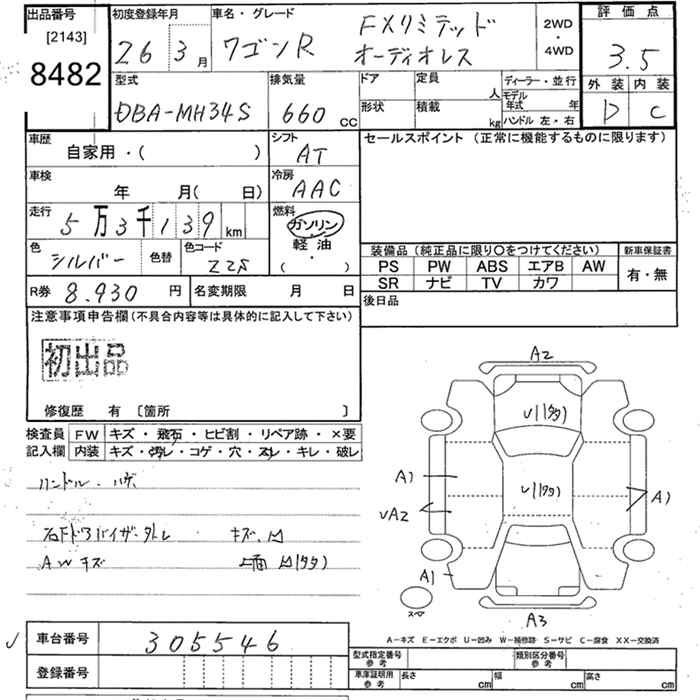 出品番号
[2143]
8482
初度登録年月
26 3月
車名・グレード
ワゴンR
FXリミテッド
オーディオレス
2WD
・
4WD
評価点
3.5
外装 内装
D C
型式
DBA-MH34S
排気量
660 CC
ドア
形状
定員
人
積載
kg
ディーラー・並行
モデル
年式 年
ハンドル 左・右
車歴
自家用・( )
シフト
AT
セールスポイント (正常に機能するものに限ります)
車検
年 月( 日)
冷房
AAC
走行
5万3千139 km
燃料
ガソリン
・
軽油
( ・ )
色
シルバー
色替
色コード
Z2S
装備品(純正品に限り○をつけてください)
新車保証書
PS PW ABS エアB AW
SR ナビ TV カワ
有・無
R券 8.930 円
名変期限 月 日
後日品
注意事項申告欄(不具合内容等は具体的に記入して下さい)
初出品
修復歴 有 〔箇所 〕
検査員
記入欄
FW キズ・飛石・ヒビ割・リペア跡・×要
内装 キズ・汚レ・コゲ・穴・スレ・キレ・破レ
ハンドル・ハゲ
右Fドアバイザー欠レ キズ、凹
AWキズ 上面 凹(多)
A2
U1(多)
U1(多)
A1
UA2
A1
A1
スペア
A3
A-キズ E-エクボ U-凹み W-補修跡 S-サビ C-腐食 XX-交換済
車台番号 305546
登録番号
型式指定番号
参考
類別区分番号
参考
車庫証明用
参考
長さ cm
幅 cm
高さ cm